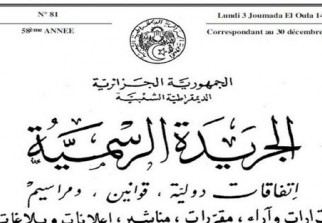 N° 81
Lundi 3 Joumada El Oula 14
58ème ANNEE
Correspondant au 30 décembre
الجمهورية الجزائرية
الديمقراطية الشعبية
الجريدة الرسمية
إتفاقات دولية ، قوانين ، ومراسيم
قرارات وآراء ، مقررات ، مناشير ، إعلانات وبلاغات